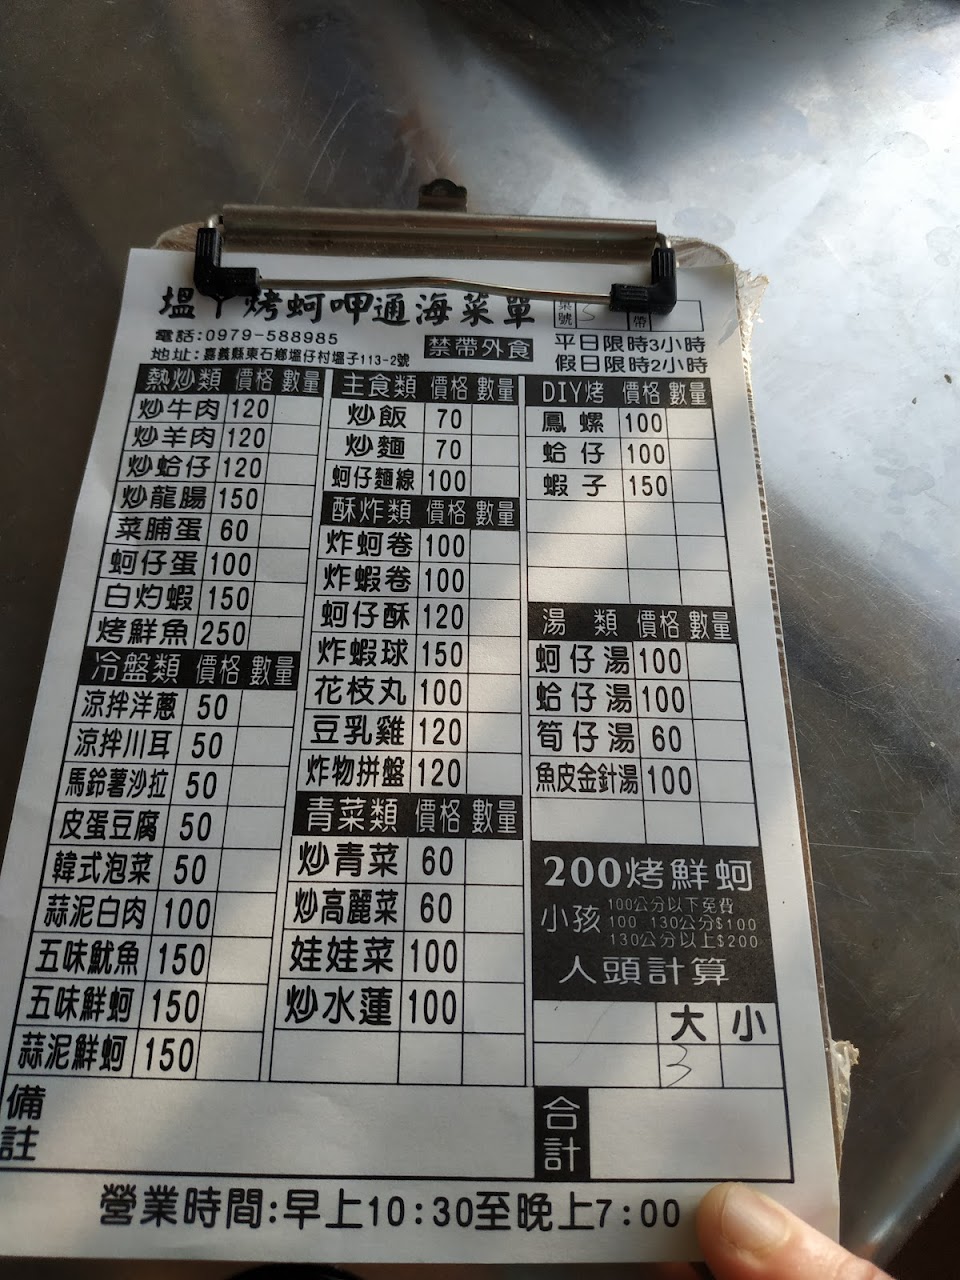 烤蚵呷通海菜單
電話:0979-588985
地址:嘉義縣東石鄉塭仔村塭子113-2號
禁帶外食
號 5
帶
平日限時3小時
假日限時2小時
熱炒類 價格 數量
炒牛肉 120
炒羊肉 120
炒蛤仔 120
炒龍腸 150
菜脯蛋 60
蚵仔蛋 100
白灼蝦 150
烤鮮魚 250
冷盤類 價格 數量
涼拌洋蔥 50
涼拌川耳 50
馬鈴薯沙拉 50
皮蛋豆腐 50
韓式泡菜 50
蒜泥白肉 100
五味魷魚 150
五味鮮蚵 150
蒜泥鮮蚵 150
主食類 價格 數量
炒飯 70
炒麵 70
蚵仔麵線 100
酥炸類 價格 數量
炸蚵卷 100
炸蝦卷 100
蚵仔酥 120
炸蝦球 150
花枝丸 100
豆乳雞 120
炸物拼盤 120
青菜類 價格 數量
炒青菜 60
炒高麗菜 60
娃娃菜 100
炒水蓮 100
DIY烤 價格 數量
鳳螺 100
蛤仔 100
蝦子 150
湯類 價格 數量
蚵仔湯 100
蛤仔湯 100
筍仔湯 60
魚皮金針湯 100
200烤鮮蚵
小孩
100公分以下免費
100 130公分$100
130公分以上$200
人頭計算
大 小
3
備註
合計
營業時間:早上10:30至晚上7:00